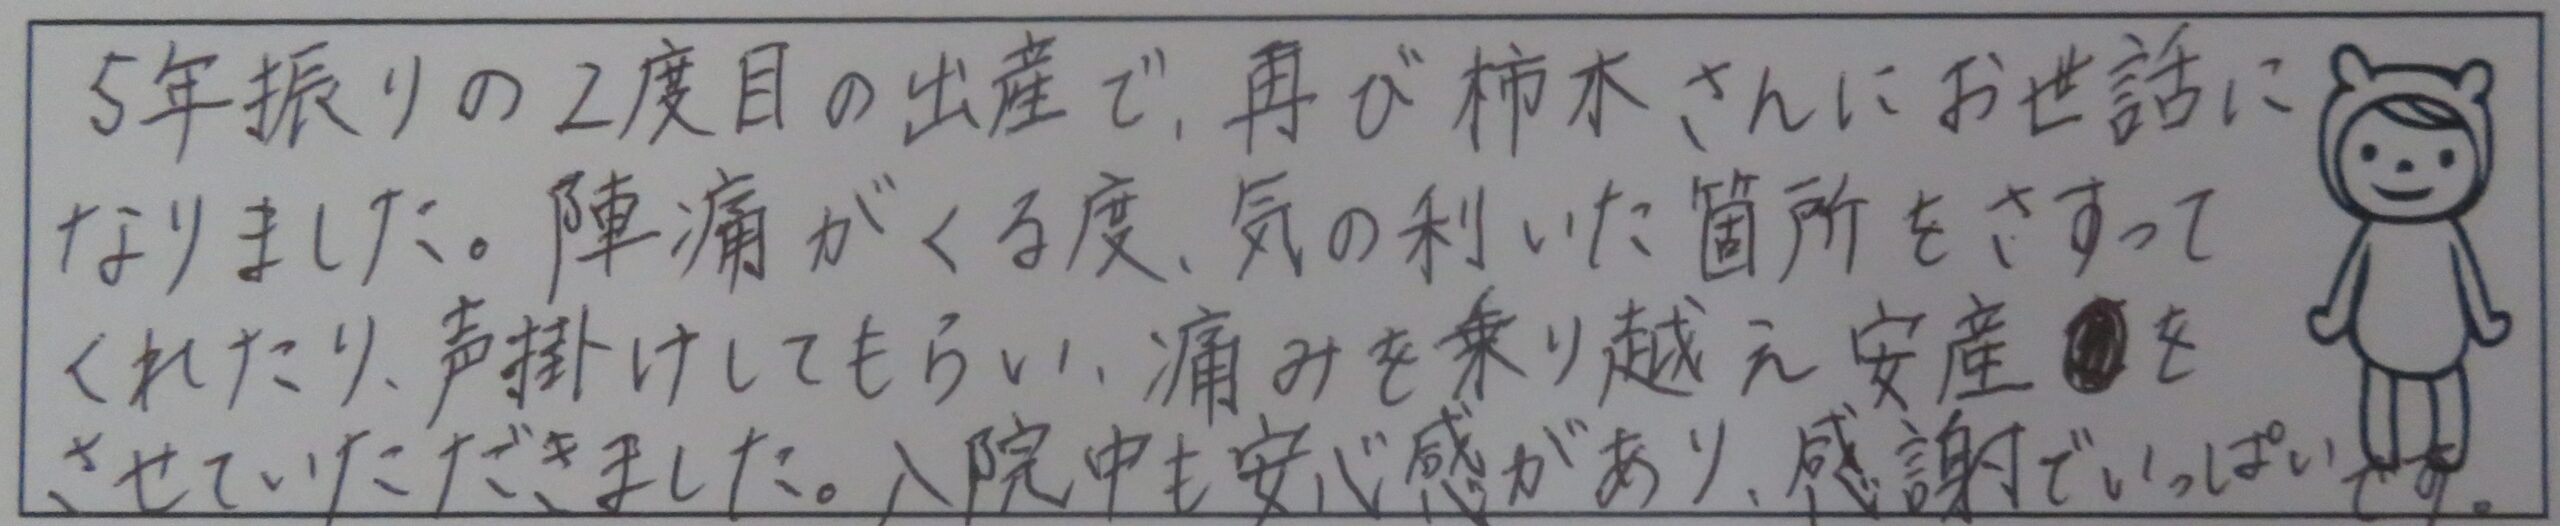 5年振りの2度目の出産で、再び柿木さんにお世話に
なりました。陣痛がくる度、気の利いた箇所をさすって
くれたり、声掛けしてもらい、痛みを乗り越え安産を
させていただきました。入院中も安心感があり、感謝でいっぱいです。